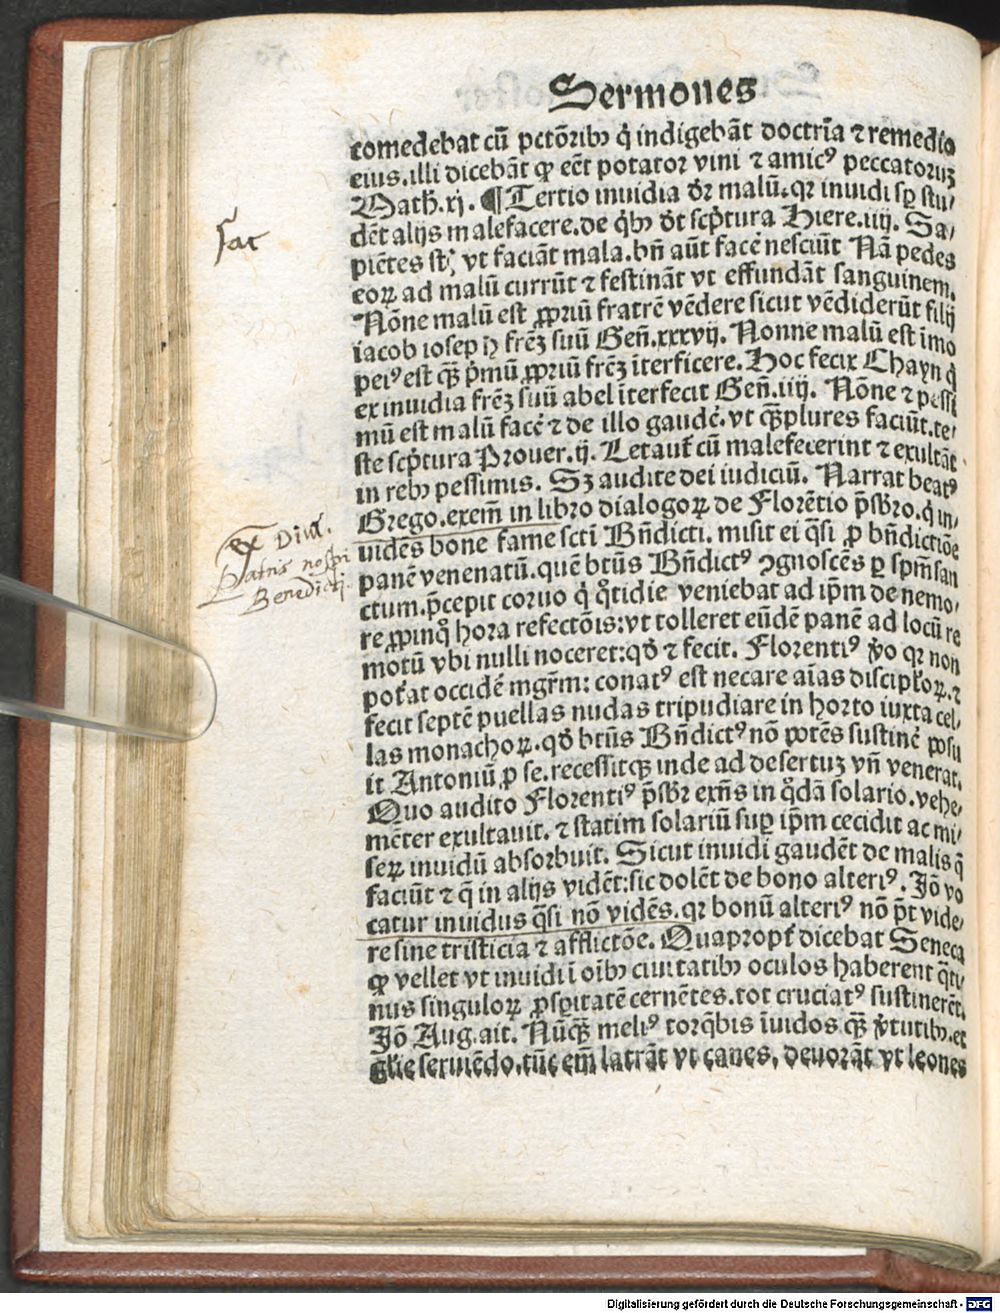 Sermones
comedebat cū pctōribꝰ q̇ indigebāt doctrīa ⁊ remedio
eius. illi dicebāt ꝙ eēt potator vini ⁊ amicꝰ peccatoruꝫ
Math̄. xj. ¶ Tertio inuidia dr̄ malū. qꝛ inuidi sꝑ stu/
dēt alijs malefacere. de q̇bꝰ dt̄ scp̄tura Hiere. iiij. Sa/
piētes st̄, vt faciāt mala. bn̄ aūt facē nesciūt Nā pedes
eoꝝ ad malū currūt ⁊ festināt vt effundāt sanguinem.
Nōne malū est ꝓpriū fratrē vēdere sicut vēdiderūt filij
iacob ioseph frēꝫ suū Gen̄. xxxvij. Nonne malū est īmo
peiꝰ est qꝫ̄ p̄mū ꝓpriū frēꝫ īterficere. Hoc fecit Chayn q̇
ex inuidia frēꝫ suū abel īterfecit Gen̄. iiij. Nōne ⁊ pessi
mū est malū facē ⁊ de illo gaudē. vt qꝫ̄plures faciūt. te/
ste scp̄tura Prouer. ij. Letant̄ cū malefecerint ⁊ exultāt
in rebꝰ pessimis. Sꝫ audite dei iudiciū. Narrat beatꝰ
Grego. exem̄ in libro dialogoꝝ de Florētio p̄sbr̄o. q̇ in/
uidēs bone fame scti Bn̄dicti. misit ei q̄si ꝓ bn̄dictiōe
panē venenatū. quē btūs Bn̄dictꝰ ꝯgnoscēs ꝑ spm̄ san
ctum. p̄cepit coruo q̇ q̊tidie veniebat ad ip̄m de nemo/
re ꝓpinq̊ hora refectōis: vt tolleret eūdē panē ad locū re
motū vbi nulli noceret: qd̄ ⁊ fecit. Florentiꝰ v̊o qꝛ non
pot̄at occidē mgr̄m: conatꝰ est necare aīas discipl̄oꝝ. ⁊
fecit septē puellas nudas tripudiare in horto iuxta cel/
las monachoꝝ. qd̄ btūs Bn̄dictꝰ nō potēs sustinē posu
it Antoniū ꝓ se. recessitqꝫ inde ad desertuꝫ vn̄ venerat.
Quo audito Florentiꝰ p̄sbr̄ exn̄s in q̊dā solario. vehe/
mēter exultauit. ⁊ statim solariū suꝑ ip̄m cecidit ac mi/
seꝝ inuidū absorbuit. Sicut inuidi gaudēt de malis q̄
faciūt ⁊ q̄ in alijs vidēt: sic dolēt de bono alteriꝰ. Jō vo
catur inuidus q̄si nō vidēs. qꝛ bonū alteriꝰ nō p̄t vide/
re sine tristicia ⁊ afflictōe. Quapropt̄ dicebat Seneca
ꝙ vellet vt inuidi ī oībꝰ ciuitatibꝰ oculos haberent q̄ti/
nus singuloꝝ ꝓsꝑitatē cernētes. tot cruciatꝰ sustinerēt.
Jō Aug. ait. Nūqꝫ̄ meliꝰ torq̄bis īuidos qꝫ̄ v̊tutibꝰ. et
gl̄ie seruiēdo. tūc em̄ latrāt vt canes, deuorāt vt leones
fac
Ex Diui.
Patris nostri
Benedicti
Digitalisierung gefördert durch die Deutsche Forschungsgemeinschaft - DFG